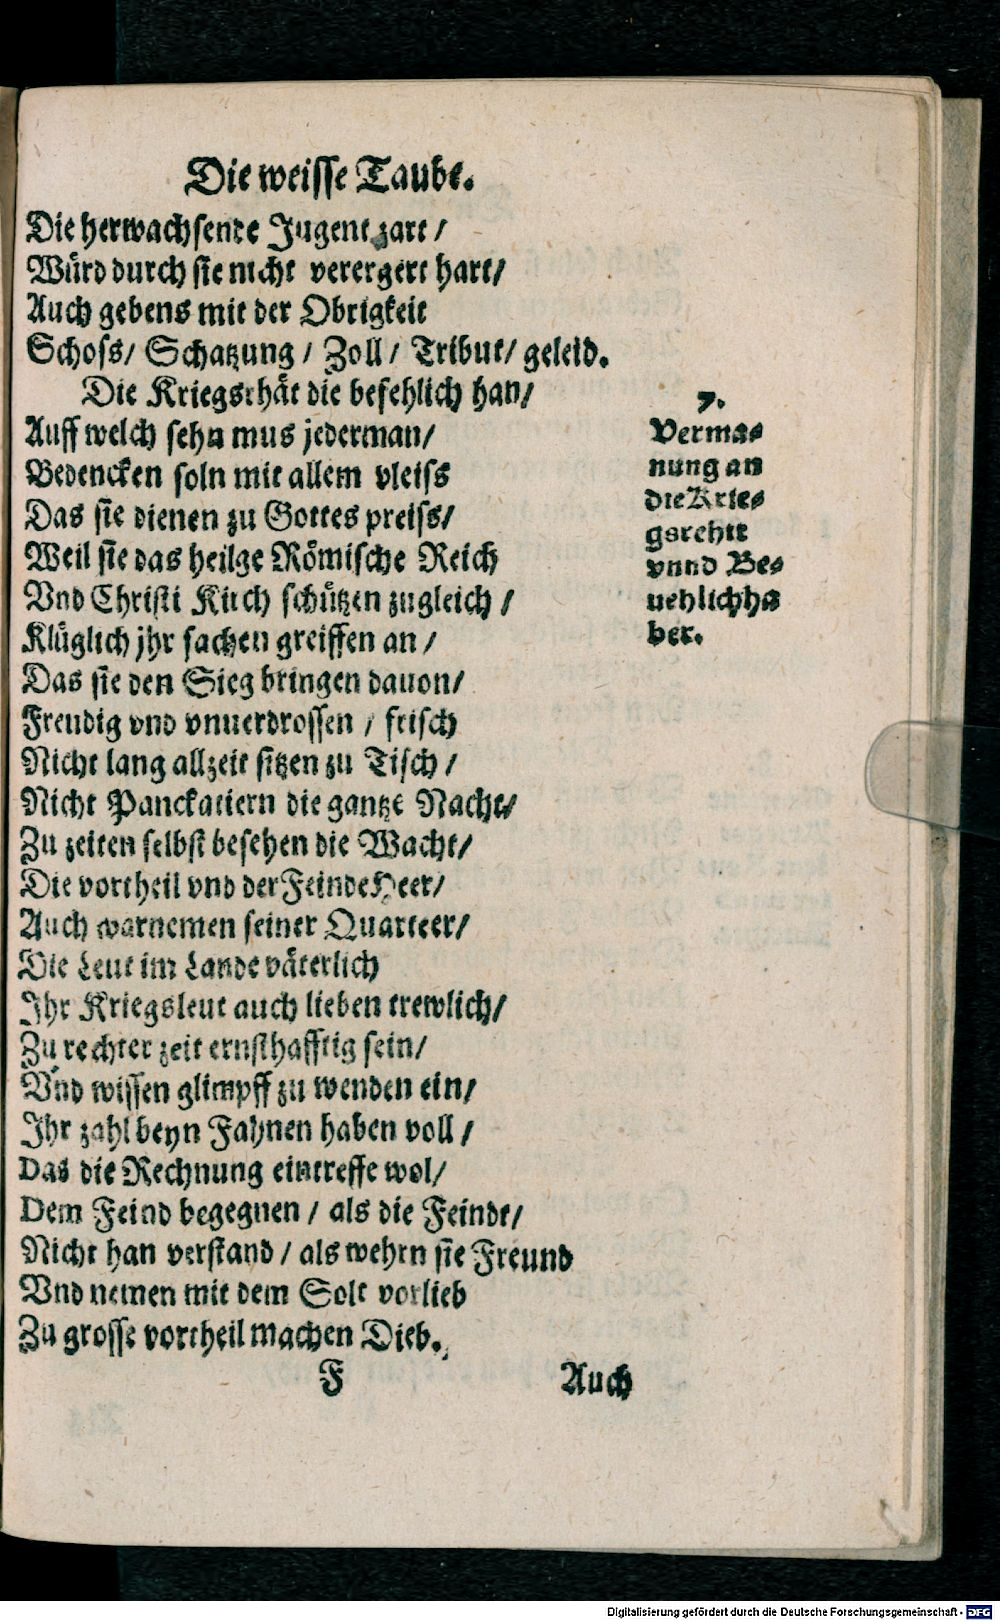 Die weisse Taube.
Die herwachsende Jugent zart /
Würd durch sie nicht verergert hart/
Auch gebens mit der Obrigkeit
Schoss/ Schatzung / Zoll / Tribut/ geleid.
Die Kriegsrhät die befehlich han/
Auff welch sehn mus jederman/
Bedencken soln mit allem vleiss
Das sie dienen zu Gottes preiss/
Weil sie das heilge Römische Reich
Vnd Christi Kirch schützen zugleich /
Klüglich jhr sachen greiffen an /
Das sie den Sieg bringen dauon/
Freudig vnd vnuerdrossen / frisch
Nicht lang allzeit sitzen zu Tisch /
Nicht Panckatiern die gantze Nacht/
Zu zeiten selbst besehen die Wacht/
Die vortheil vnd der Feinde Heer/
Auch warnemen seiner Quarteer/
Die Leut im Lande väterlich
Ihr Kriegsleut auch lieben trewlich/
Zu rechter zeit ernsthafftig sein/
Vnd wissen glimpff zu wenden ein/
Ihr zahl beyn Fahnen haben voll /
Das die Rechnung eintreffe wol/
Dem Feind begegnen / als die Feinde/
Nicht han verstand / als wehrn sie Freund
Vnd nemen mit dem Solt vorlieb
Zu grosse vortheil machen Dieb.
7.
Verma=
nung an
die Krie=
gsrehte
vnnd Be=
uehlichha
ber.
F
Auch
Digitalisierung gefördert durch die Deutsche Forschungsgemeinschaft - DFG